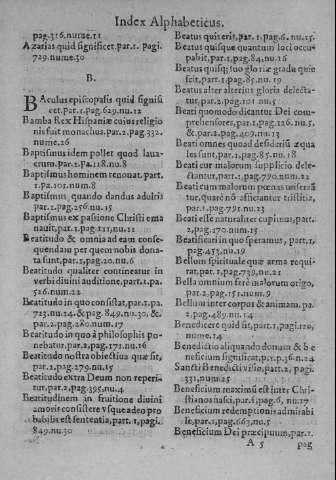 Index Alphabeticus.
pag.316.nume.11
Azarias quid significet.par.1. pagi.
729.nume.30
B.
BAculus episcopalis quid signifi
cet.par.1.pag.629.nu.12
Bamba Rex Hispaniæ cuius religio
nis fuit monachus.par.2.pag.332.
nume.26
Baptismus idem pollet quod lava-
crum.par.1.Pa.118.nu.8
Baptismus hominem renouat.part.
1.pa.101.num.8
Baptismus quando dandus adultis
par.1.pag.256.nu.15
Baptismus ex passione Christi ema
nauit,par.1 pag.211,nu.11
Beatitudo & omnia ad eam conse-
quendam per quem nobis dona
ta sunt,par.1,pag.20.nu.6
Beatitudo qualiter contineatur in
verbi diuini auditione,part.1.pa.
526.num.22
Beatitudo in quo consistat,par.1.pa.
723.nu.24.& pag.849.nu.30.&.
par.2.pag.280.num.17
Beatitudo in quo à philosophis po-
nebatur,par.2.pag.171.nu.16
Beatitudo nostra obiectiua quæ sit,
par.2.pag.279.nu.15
Beatitudo extra Deum non reperi-
tur,par.2.pag.395.nu.4
Beatitudinem in fruitione diuini
amoris consistere vsque adeo pro
babilis est sententia,part.1,pagi.
849.nu.30
Beatus quis erit,par.1.pag.6.nu.15.
Beatus quisque quantum loci occu
pabit,par.1.pag.84,nu.16
Beatus quisq; suo gloriæ gradu quie
scit,par.1.pag.85.nu.19
Beatus alter alterius gloria delecta-
tur,par.2.pag.101.nu.5
Beati quomodo dicantur Dei com-
prehensores,par.1.pag.126.nu.5,
&.par.2.pag.409.nu.13
Beati omnes quoad desideriũ æqua
les sunt,par.1.pag.85.nu.18
Beati cur malorum supplicio dele-
ctantur,part.1.pag.790.num.21
Beati cum malorum pœnas viserãt
tur, quarè nõ afficiantur tristitia,
par.1.pag.791.nu.23
Beati esse naturaliter cupimus,part.
2,pag.170.num.15
Beatificari in quo speramus, part.1,
pag.453.nu.19
Bellum spirituale quæ arma requi-
rat.par.1.pag.739,nu.21
Bella omnium ferè malorum origo,
par.2.pag.151.num.9
Bellum inter corpus & animam.pa.
2.pag.489.nu.14
Benedicere quid sit,part.1,pagi.120,
nume.14
Benedictio aliquando donum & be
neficium significat,p.1.p.36.n.24
Sancti Benedicti visio,par.2, pagi.
331,num.25
Beneficium maximũ est inter Chri-
stianos nasci,par.1.pag.6,nu.17
Beneficium redemptionis admirabi
le,par.1,pag.663,nu.5
Beneficium Dei præcipuum,par.1.
A 5 pag